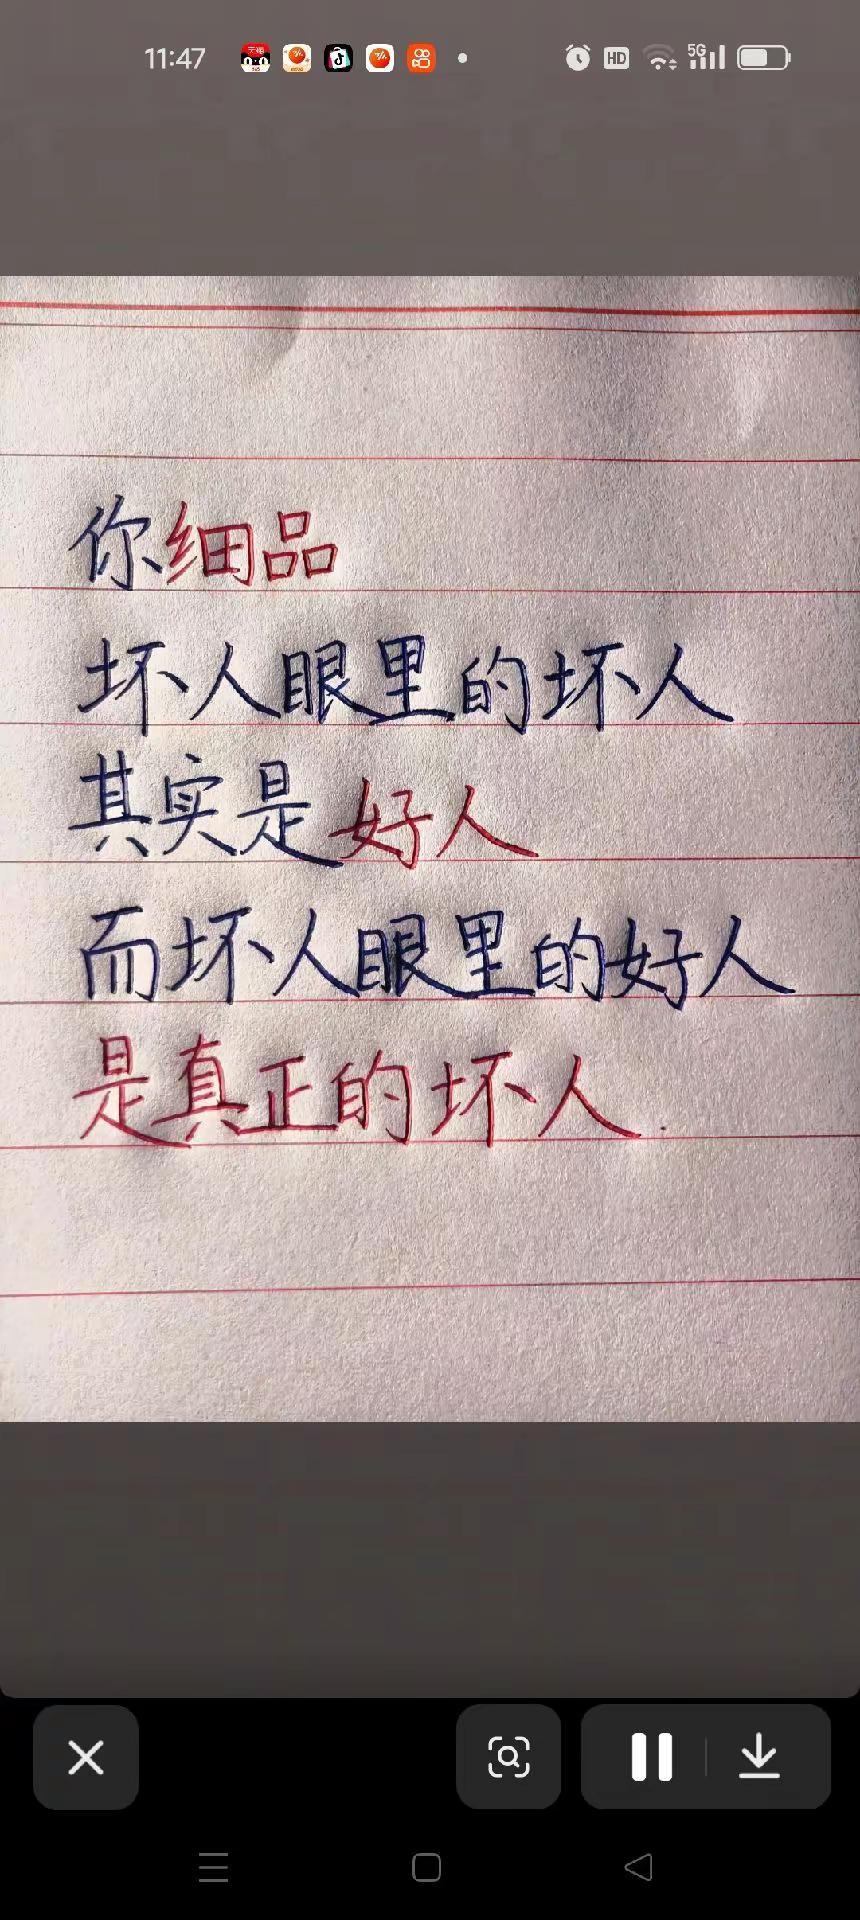 11:47
HD 5G
你细品
坏人眼里的坏人
其实是好人
而坏人眼里的好人
是真正的坏人.